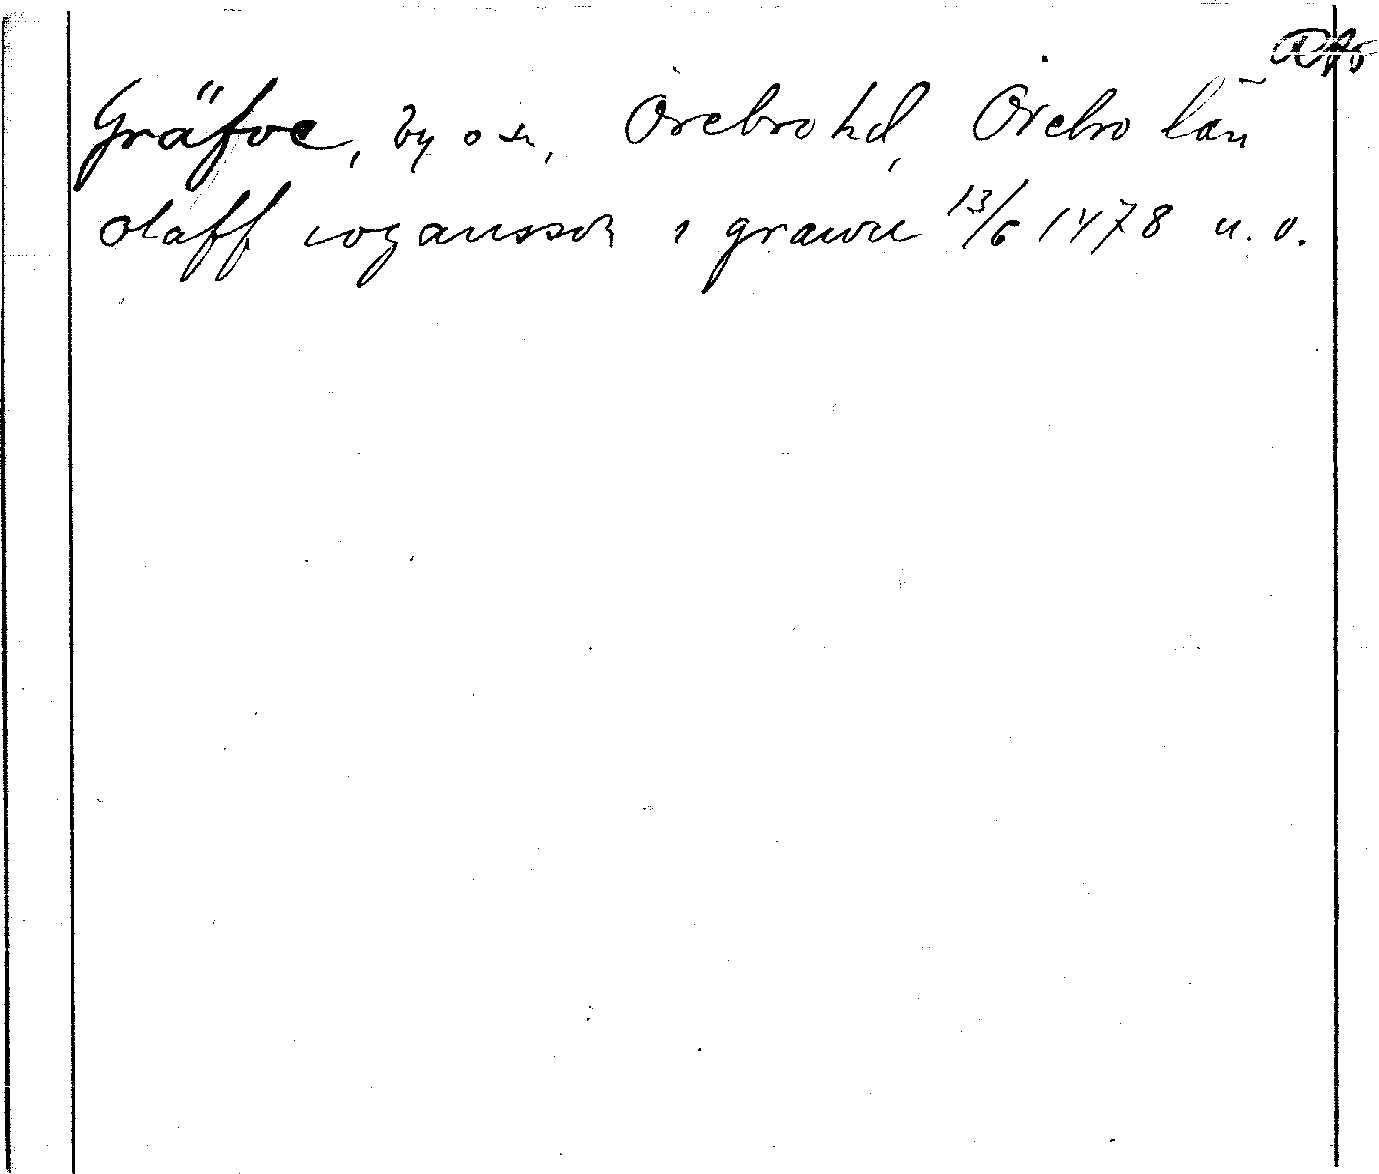 Gräfve, by o sn, Örebro hd, Örebro län
olaff iogansson i grawe 13/6 1478 u. o.